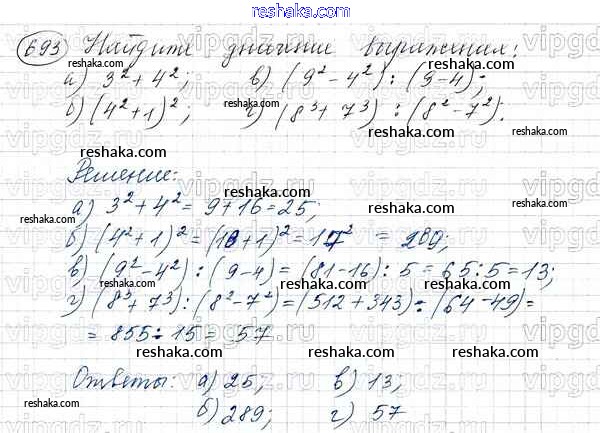 reshaka.com
693 Найдите значение выражения:
а) 3² + 4²; в) (9² - 4²) : (9 - 4);
б) (4² + 1)²; г) (8³ + 7³) : (8² - 7²).
Решение:
а) 3² + 4² = 9 + 16 = 25;
б) (4² + 1)² = (16 + 1)² = 17² = 289;
в) (9² - 4²) : (9 - 4) = (81 - 16) : 5 = 65 : 5 = 13;
г) (8³ + 7³) : (8² - 7²) = (512 + 343) : (64 - 49) =
= 855 : 15 = 57
Ответы: а) 25; в) 13;
б) 289; г) 57